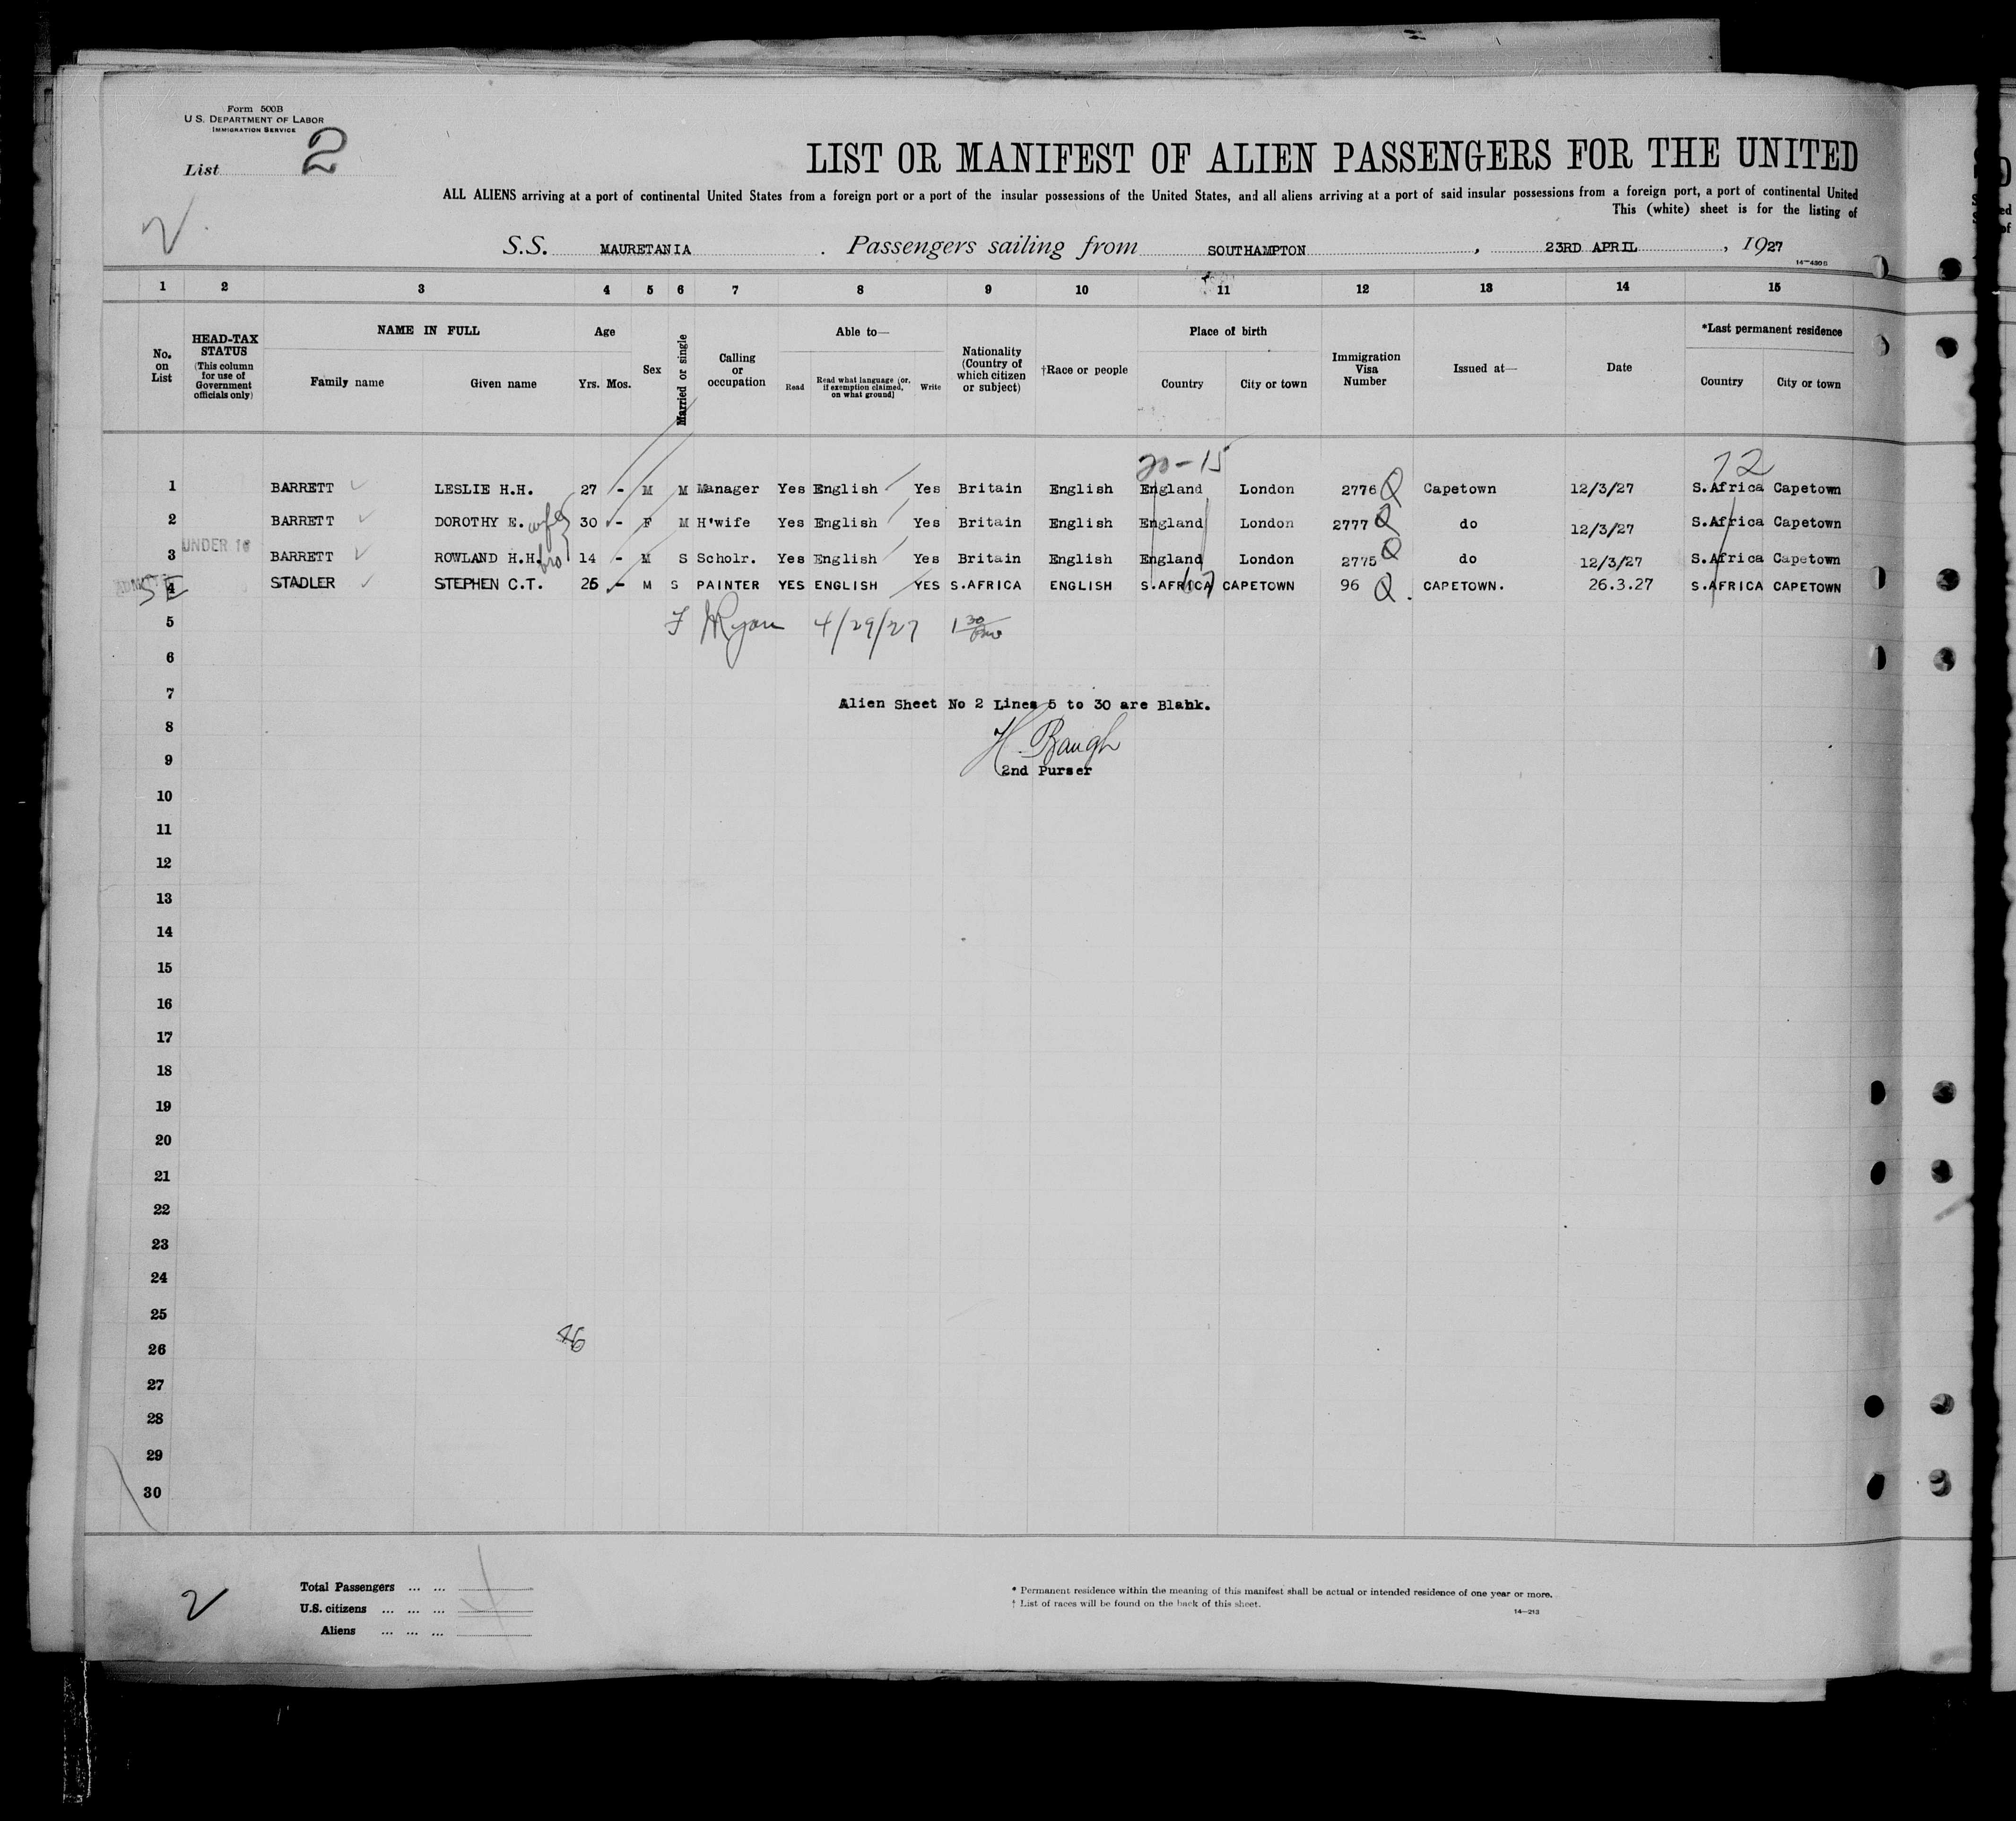 Form 500B
U.S. DEPARTMENT OF LABOR
IMMIGRATION SERVICE
List 2
2
LIST OR MANIFEST OF ALIEN PASSENGERS FOR THE UNITED
ALL ALIENS arriving at a port of continental United States from a foreign port or a port of the insular possessions of the United States, and all aliens arriving at a port of said insular possessions from a foreign port, a port of continental United
This (white) sheet is for the listing of
S.S. MAURETANIA . Passengers sailing from SOUTHAMPTON , 23RD APRIL , 1927
14—430 B
1 2 3 4 5 6 7 8 9 10 11 12 13 14 15
No. on List
HEAD-TAX STATUS (This column for use of Government officials only)
NAME IN FULL
Family name Given name
Age
Yrs. Mos.
Sex
Married or single
Calling or occupation
Able to—
Read
Read what language (or, if exemption claimed, on what ground)
Write
Nationality (Country of which citizen or subject)
†Race or people
Place of birth
Country City or town
Immigration Visa Number
Issued at—
Date
*Last permanent residence
Country City or town
20-15 72
1 BARRETT LESLIE H.H. 27 - M M Manager Yes English Yes Britain English England London 2776 Q Capetown 12/3/27 S.Africa Capetown
2 BARRETT DOROTHY E. wife 30 - F M H'wife Yes English Yes Britain English England London 2777 Q do 12/3/27 S.Africa Capetown
UNDER 16
3 BARRETT ROWLAND H.H. bro 14 - M S Scholr. Yes English Yes Britain English England London 2775 Q do 12/3/27 S.Africa Capetown
4 STADLER STEPHEN C.T. 25 - M S PAINTER YES ENGLISH YES S.AFRICA ENGLISH S.AFRICA CAPETOWN 96 Q. CAPETOWN. 26.3.27 S.AFRICA CAPETOWN
5 Ryan 4/29/27 1 30
6
7
Alien Sheet No 2 Lines 5 to 30 are Blank.
8
H. Baugh
9
2nd Purser
10
11
12
13
14
15
16
17
18
19
20
21
22
23
24
25
46
26
27
28
29
30
2
Total Passengers ... ...
U.S. citizens ... ... ...
Aliens ... ... ...
* Permanent residence within the meaning of this manifest shall be actual or intended residence of one year or more.
† List of races will be found on the back of this sheet.
14—213